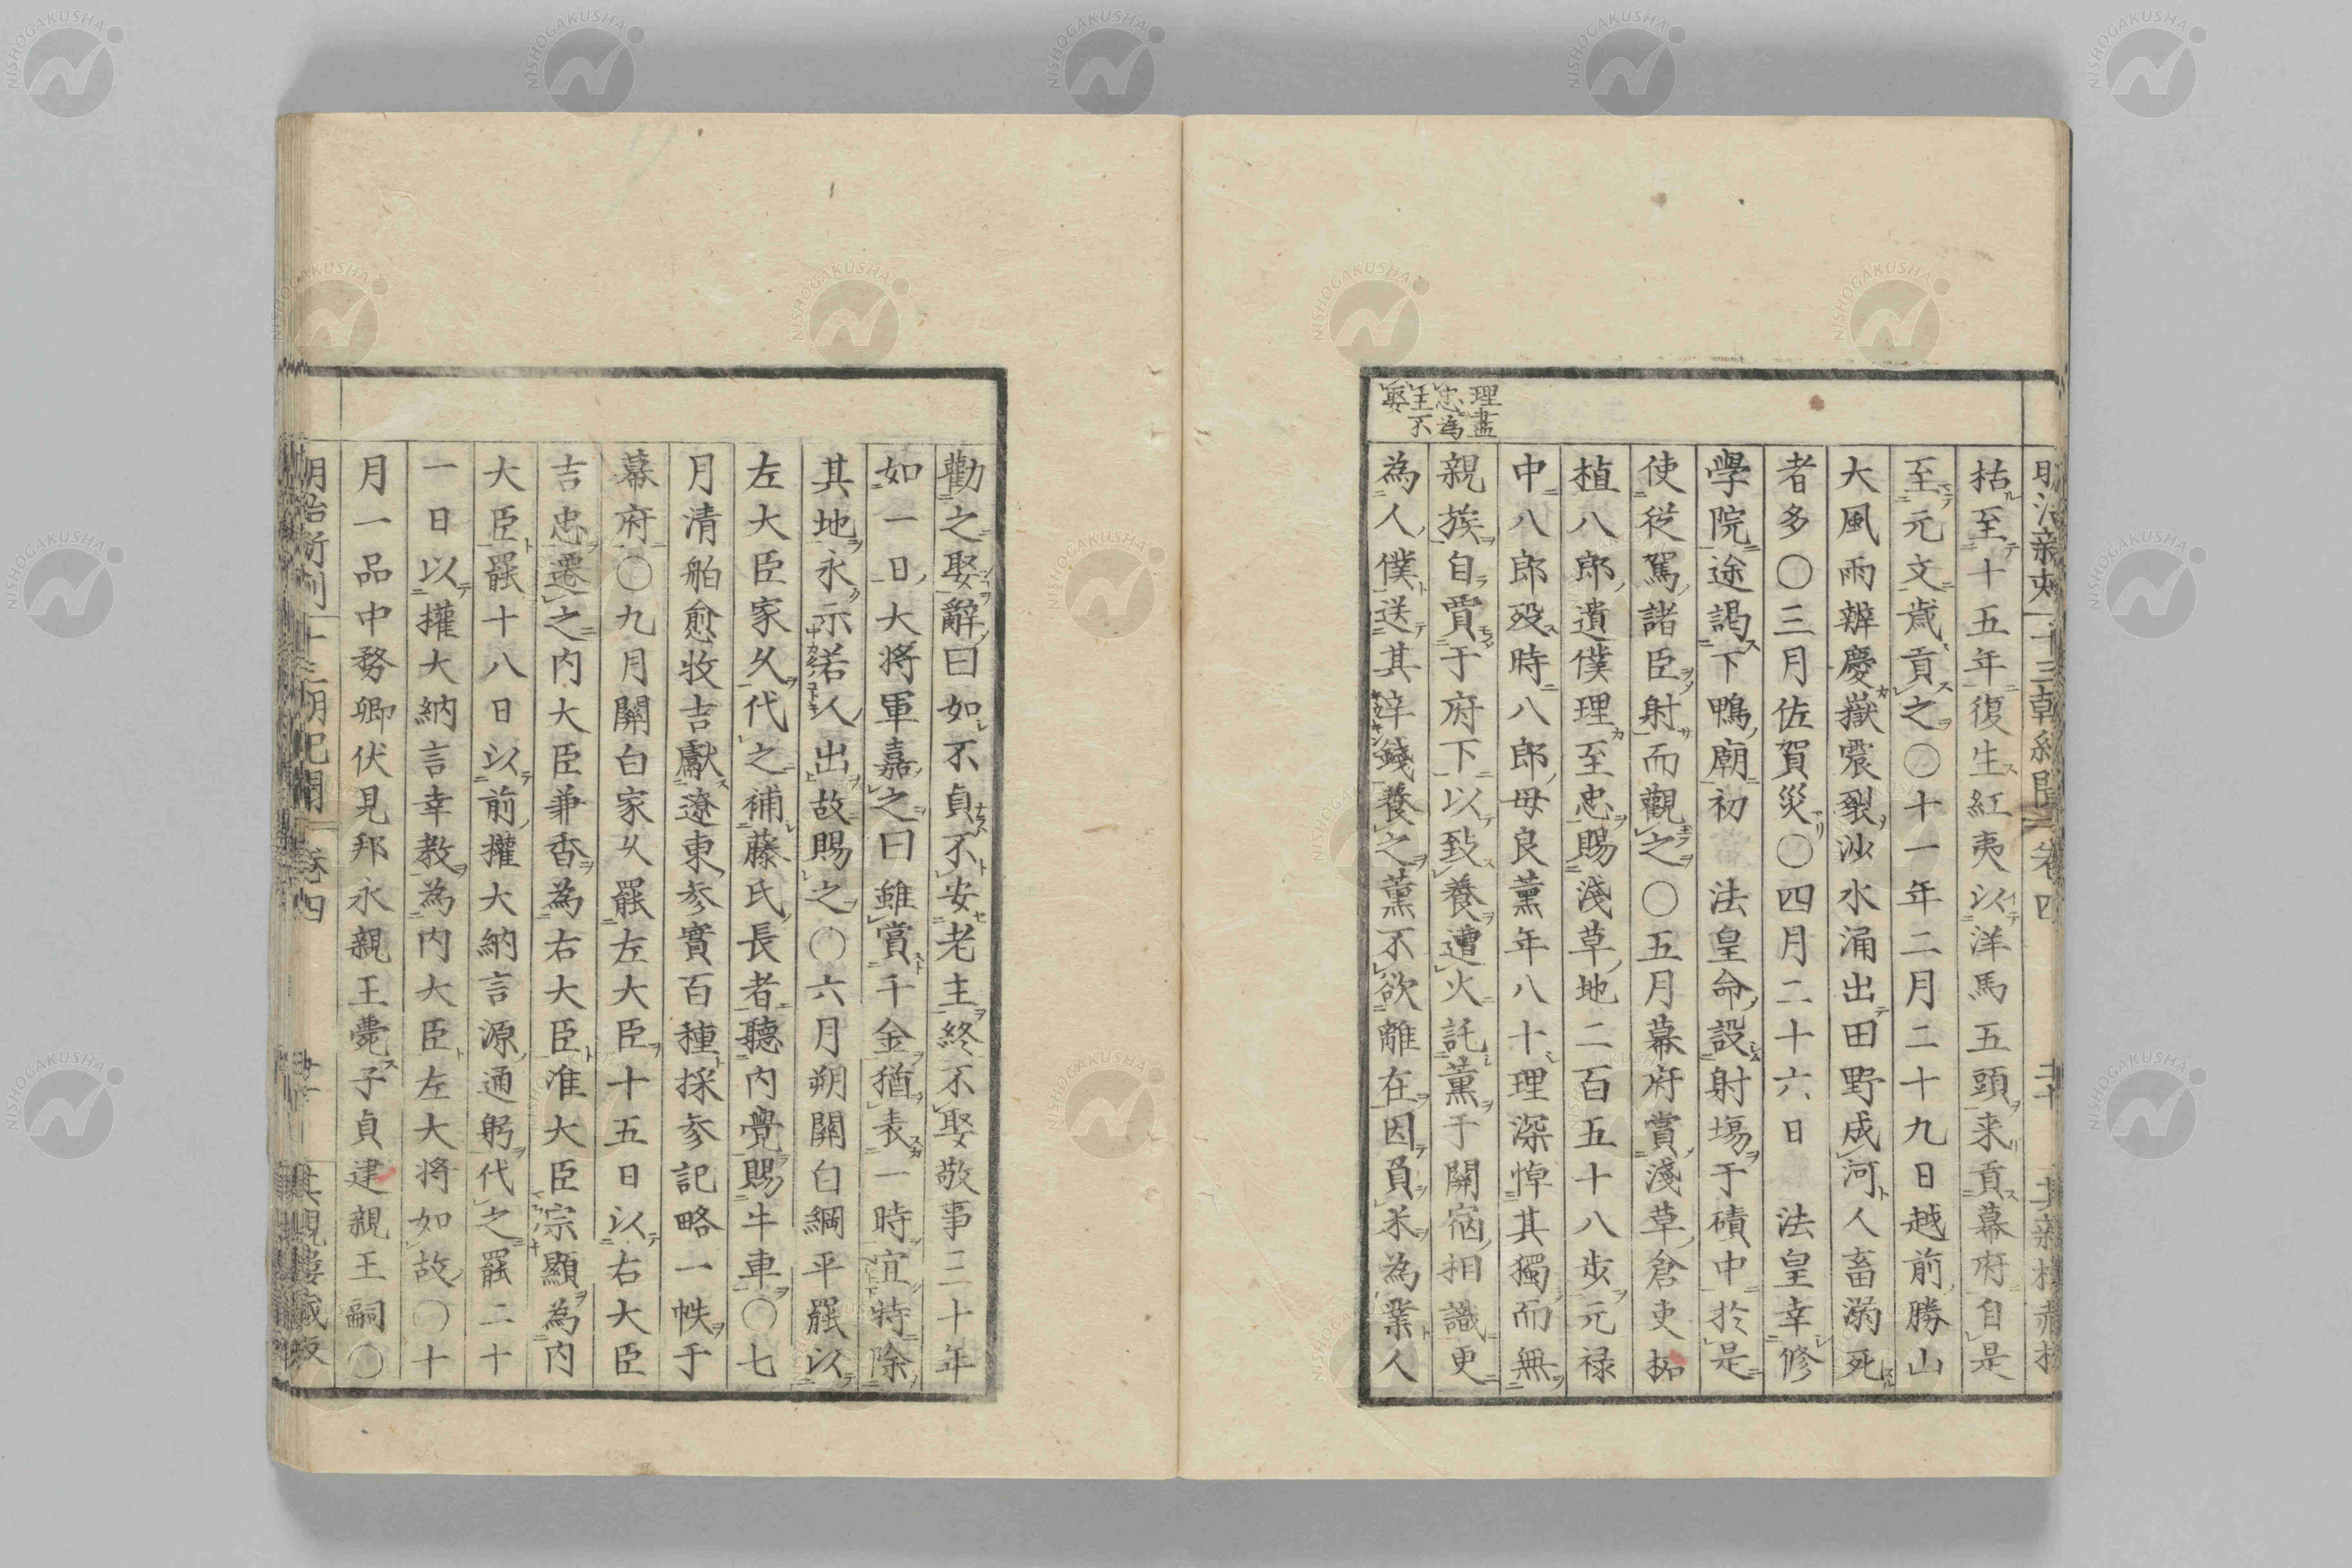 明治新刻 十三朝紀聞 卷四
枯至十五年復生紅夷以洋馬五頭来貢幕府自是
至元文歳貢之〇十一年二月二十九日越前勝山
大風雨辨慶嶽震裂沙水涌出田野成河人畜溺死
者多〇三月佐賀災〇四月二十六日 法皇幸修
學院途謁下鴨廟初 法皇命設射塲于磧中於是
使従駕諸臣射而觀之〇五月幕府賞淺草倉吏柘
植八郎遺僕理至忠賜淺草地二百五十八歩元禄
中八郎殁時八郎母良薫年八十理深悼其獨而無
親族自賣于府下以致養遭火託薫于關宿相識更
為人僕送其辛錢養之薫不欲離在因負米為業人
理盡
忠為
主不
娶
勸之娶辭曰如不貞不安老主終不娶敬事三十年
如一日大将軍嘉之曰雖賞千金猶表一時宜特除
其地永示後人出故賜之〇六月朔關白綱平罷以
左大臣家久代之補藤氏長者聽内覺賜牛車〇七
月清舶愈牧吉獻遼東参實百種採参記略一帙于
幕府〇九月關白家久罷左大臣十五日以右大臣
吉忠遷之内大臣兼香為右大臣准大臣宗顯為内
大臣罷十八日以前權大納言源通躬代之罷二十
一日以權大納言幸教為内大臣左大将如故〇十
月一品中務卿伏見邦永親王薨子貞建親王嗣〇
明治新刻 十三朝紀聞 卷四